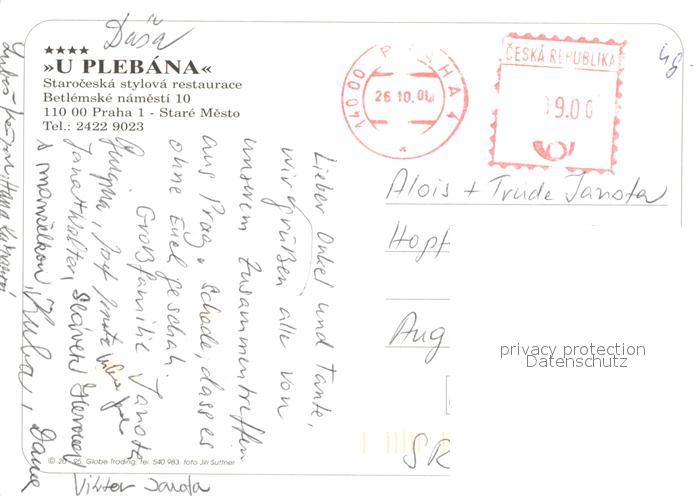 Dáša
»U PLEBÁNA«
Staročeská stylová restaurace
Betlémské náměstí 10
110 00 Praha 1 - Staré Město
Tel.: 2422 9023
140 00 PRAHA 4
26.10.01
ČESKÁ REPUBLIKA
9.00
Lieber Onkel und Tante,
wir grüßen alle von
unserem Zusammentreffen
aus Prag. Schade, dass es
ohne Euch geschah.
Großfamilie Janota
Josf Janota
Jana Walter,
s manželkou, Kuba, Dana
Viktor Janota
Alois + Trude Janota
Hopf
Aug
privacy protection
Datenschutz
Globe Trading, Tel. 540 983, foto Jiří Suttner